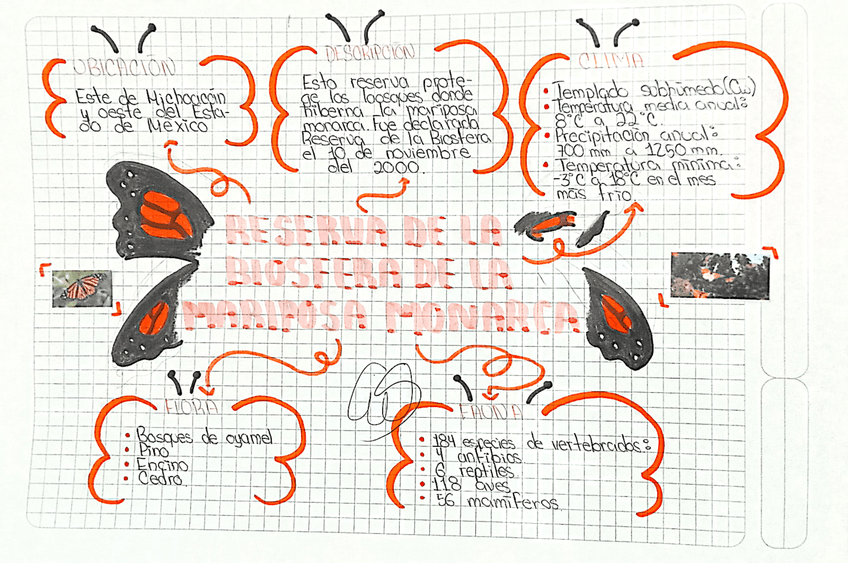 UBICACIÓN
Este de Michoacán
y oeste del Esta-
do de México
DESCRIPCIÓN
Esta reserva prote-
ge los bosques donde
hiberna la mariposa
monarca. Fue declarada
Reserva de la Biosfera
el 10 de noviembre
del 2000.
CLIMA
• Templado subhúmedo (Cw)
• Temperatura media anual:
8°C a 22°C.
• Precipitación anual:
700 mm a 1250 mm.
• Temperatura mínima:
-3°C a 18°C en el mes
más frío.
RESERVA DE LA
BIOSFERA DE LA
MARIPOSA MONARCA
FLORA
• Bosques de oyamel
• Pino
• Encino
• Cedro.
FAUNA
• 184 especies de vertebrados:
• 4 anfibios
• 6 reptiles
• 118 aves
• 56 mamíferos